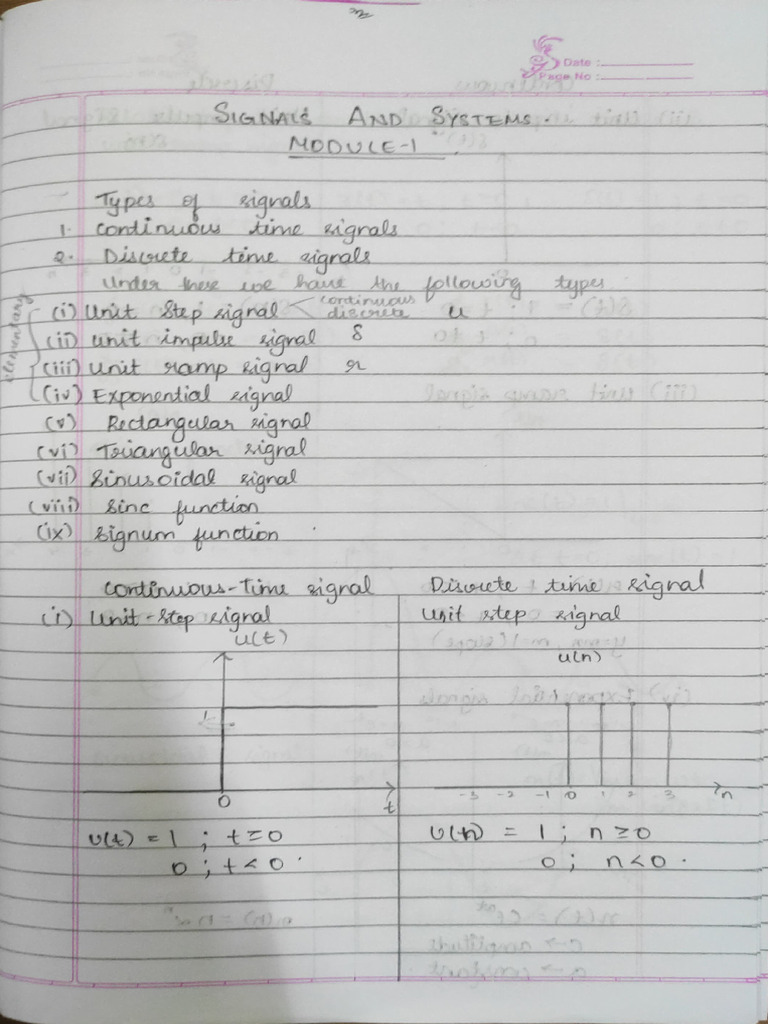 Date :
Page No :
SIGNALS AND SYSTEMS.
MODULE-1
Types of signals
1. Continuous time signals
2. Discrete time signals
Under these we have the following types
elementary
(i) Unit Step signal < continuous discrete u
(ii) unit impulse signal δ
(iii) Unit ramp signal r
(iv) Exponential signal
(v) Rectangular signal
(vi) Triangular signal
(vii) Sinusoidal signal
(viii) Sinc function
(ix) Signum function .
Continuous-Time signal Discrete time signal
(i) Unit-Step signal Unit step signal
u(t) u(n)
1
0 t -3 -2 -1 0 1 2 3 n
U(t) = 1 ; t ≥ 0 U(n) = 1 ; n ≥ 0
0 ; t < 0 . 0 ; n < 0 .